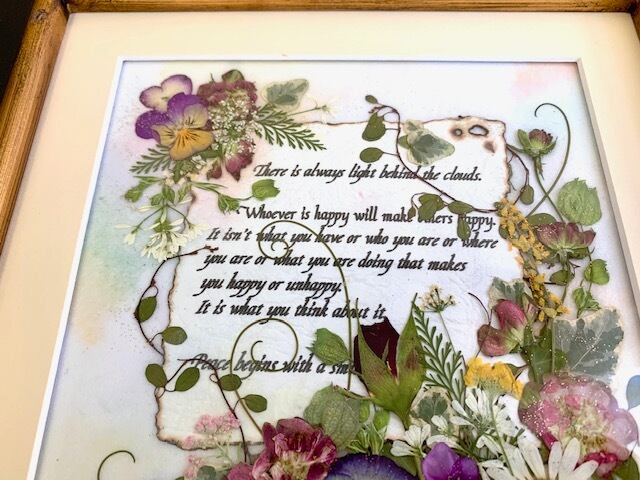 There is always light behind the clouds.
Whoever is happy will make others happy.
It isn't what you have or who you are or where
you are or what you are doing that makes
you happy or unhappy.
It is what you think about it
Peace begins with a